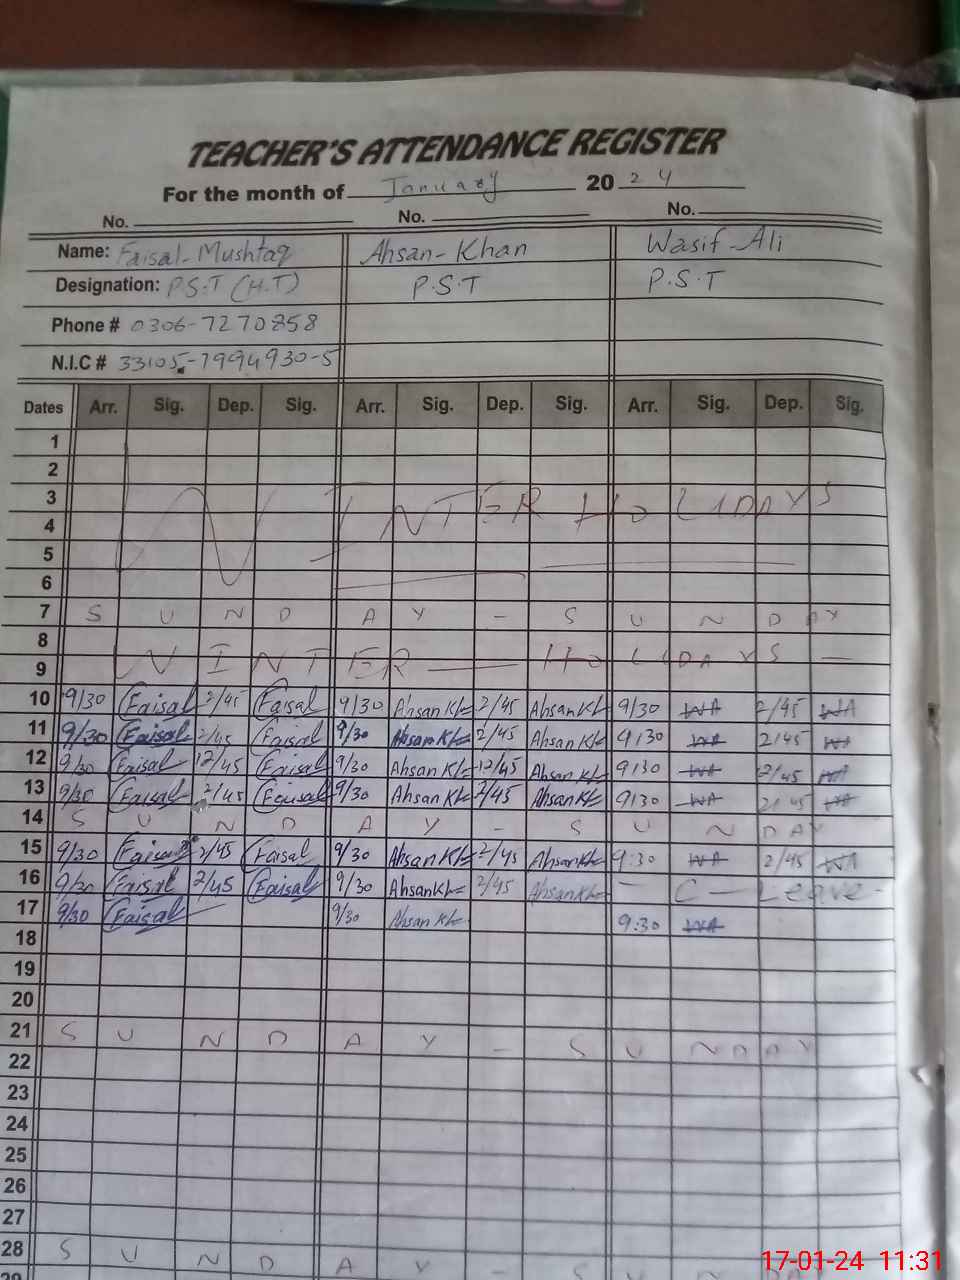 TEACHER'S ATTENDANCE REGISTER
For the month of January 2024
No. No. No.
Name: Faisal-Mushtaq Ahsan-Khan Wasif-Ali
Designation: P.S.T (H.T) P.S.T P.S.T
Phone # 0306-7270858
N.I.C # 33105-7994930-5
Dates Arr. Sig. Dep. Sig. Arr. Sig. Dep. Sig. Arr. Sig. Dep. Sig.
1
2
3 WINTER HOLIDAYS
4
5
6
7 SUNDAY - SUNDAY
8
9 WINTER HOLIDAYS
10 9/30 Faisal 2/45 Faisal 9/30 AhsanKh 2/45 AhsanKh 9/30 WA 2/45 WA
11 9/30 Faisal 2/45 Faisal 9/30 AhsanKh 2/45 AhsanKh 9130 WA 2145 WA
12 9/30 Faisal 12/45 Faisal 9/30 AhsanKh 12/45 AhsanKh 9130 WA 12/45 WA
13 9/30 Faisal 2/45 Faisal 9/30 AhsanKh 2/45 AhsanKh 9130 WA 2145 WA
14 SUNDAY - SUNDAY
15 9/30 Faisal 2/45 Faisal 9/30 AhsanKh 2/45 AhsanKh 9:30 WA 2/45 WA
16 9/30 Faisal 2/45 Faisal 9/30 AhsanKh 2/45 AhsanKh - C - Leave -
17 9/30 Faisal 9/30 AhsanKh 9:30 WA
18
19
20
21 SUNDAY - SUNDAY
22
23
24
25
26
27
28 SUNDAY - SUNDAY
29
17-01-24 11:31